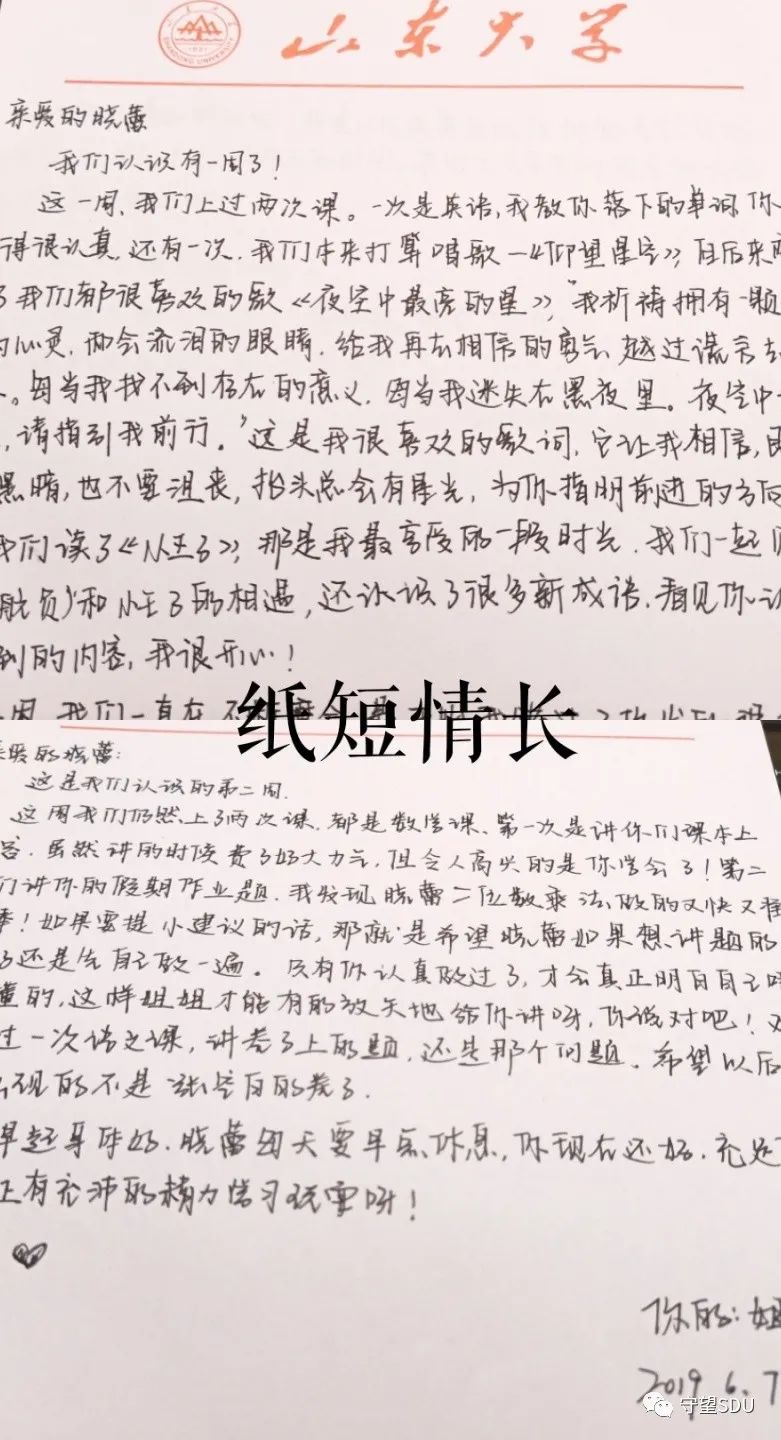 SHANDONG UNIVERSITY
1901
山东大学
亲爱的晓蕾
我们认识有一周了!
这一周,我们上过两次课。一次是英语,我教你落下的单词,你
得很认真,还有一次,我们本来打算唱歌—《仰望星空》,且后来
了我们都很喜欢的歌《夜空中最亮的星》,“我祈祷拥有一颗
的心灵,而会流泪的眼睛,给我再去相信的勇气,越过谎言去
。每当我找不到存在的意义,每当我迷失在黑夜里。夜空中
,请指引我前行。”这是我很喜欢的歌词,它让我相信,即
黑暗,也不要沮丧,抬头总会有星光,为你指明前进的方向
我们读了《小王子》,那是我最享受的一段时光,我们一起
和小王子的相遇,还认识了很多新成语,看见你认
到的内容,我很开心!
周,我们一直在
纸短情长
亲爱的晓蕾:
这是我们认识的第二周.
这周我们仍然上了两次课,都是数学课,第一次是讲你们课本上
容.虽然讲的时候费了好大力气,但令人高兴的是你学会了!第二
们讲你的假期作业题,我发现晓蕾二位数乘法,做的又快又准
季!如果要提小建议的话,那就是希望晓蕾如果想讲题的
了还是先自己做一遍。只有你认真做过了,才会真正明白自己
懂的,这样姐姐才能有的放矢地给你讲呀,你说对吧!
过一次语文课,讲卷子上的题,还是那个问题。希望以后
出现的不是一张空白的卷子.
早起身体好.晓蕾每天要早点休息,你现在还好.充足
正有充沛的精力学习玩耍呀!
你的:姐
2019.6.7
守望SDU